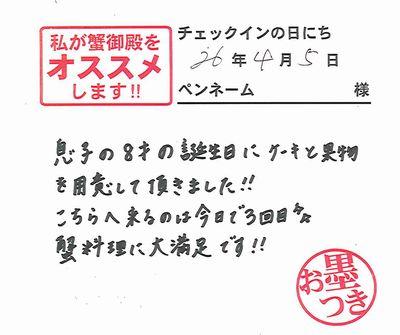 私が蟹御殿を
オススメ
します!!
チェックインの日にち
26年4月5日
ペンネーム 様
息子の8才の誕生日にケーキと果物
を用意して頂きました!!
こちらへ来るのは今日で3回目々
蟹料理に大満足です!!
お墨つき